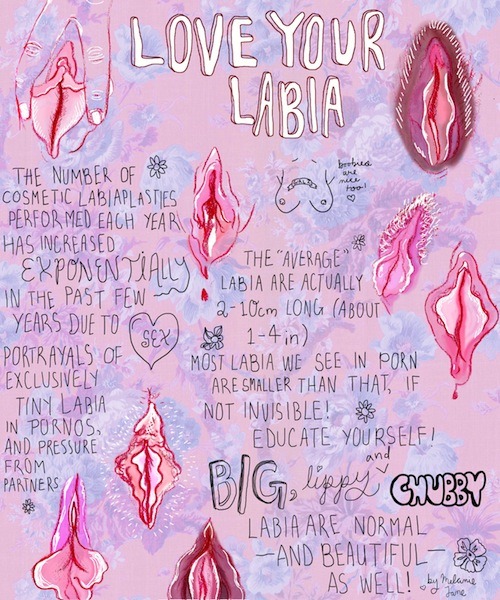 LOVE YOUR
LABIA
boobies
are
nice
too!
THE NUMBER OF
COSMETIC LABIAPLASTIES
PERFORMED EACH YEAR
HAS INCREASED
EXPONENTIALLY
IN THE PAST FEW
YEARS DUE TO
SEX
PORTRAYALS OF
EXCLUSIVELY
TINY LABIA
IN PORNOS,
AND PRESSURE
FROM
PARTNERS
THE "AVERAGE"
LABIA ARE ACTUALLY
2-10cm LONG (ABOUT
1-4in)
MOST LABIA WE SEE IN PORN
ARE SMALLER THAN THAT, IF
NOT INVISIBLE!
EDUCATE YOURSELF!
BIG, lippy and CHUBBY
LABIA ARE NORMAL
—AND BEAUTIFUL—
AS WELL!
by Melanie
Jane